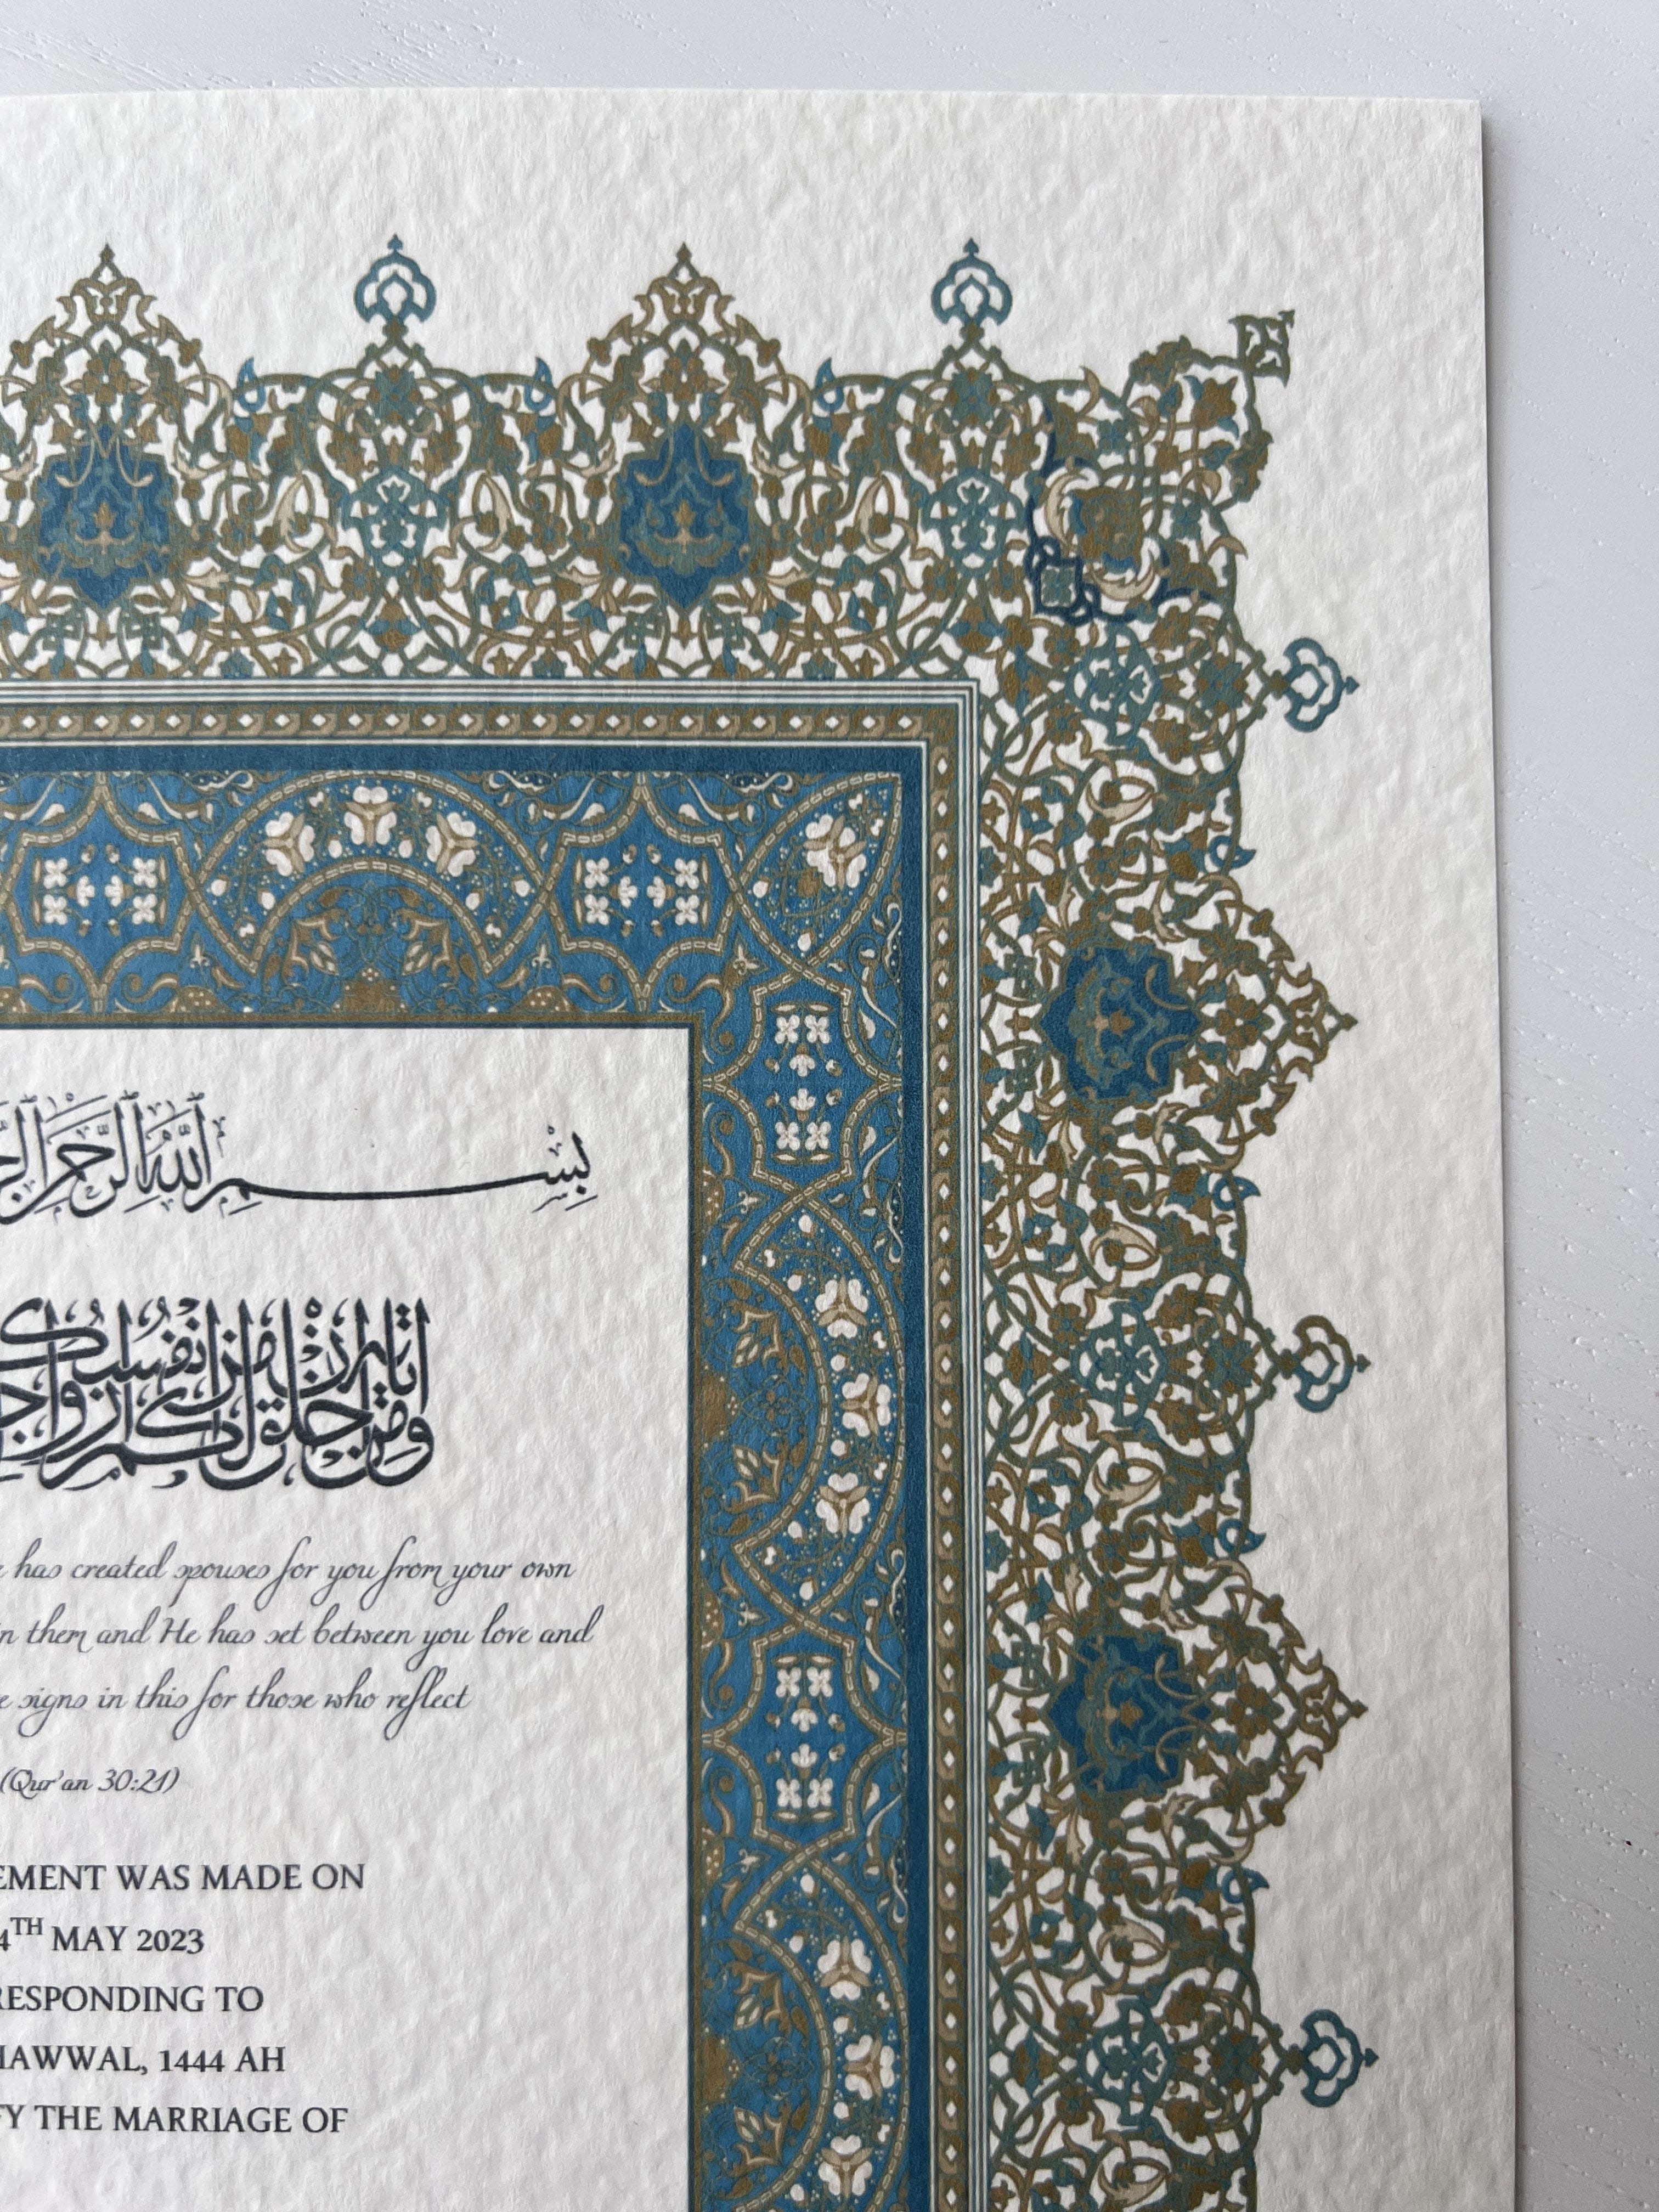 بِسْمِ اللَّهِ الرَّحْمَنِ
وَمِنْ آيَاتِهِ أَنْ خَلَقَ لَكُمْ مِنْ أَنْفُسِكُ أَزْوَاجً
has created spouses for you from your own
them and He has set between you love and
signs in this for those who reflect
(Qur'an 30:21)
EMENT WAS MADE ON
4TH MAY 2023
RESPONDING TO
AWWAL, 1444 AH
FY THE MARRIAGE OF